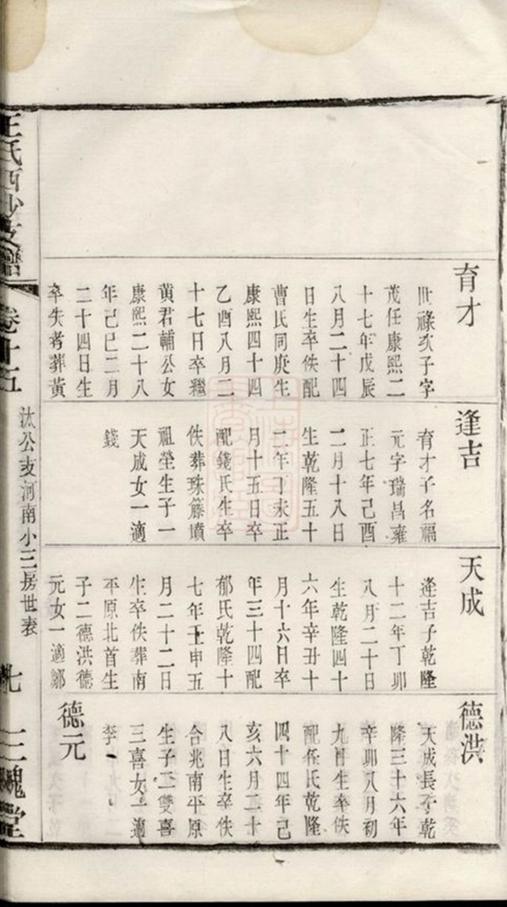 育才
世祿次子字
茂任康熙二
十七年戊辰
八月二十四
日生卒佚配
曹氏同庚生
康熙四十四
乙酉八月二
十七日卒繼
黃君輔公女
康熙二十八
年己巳二月
二十四日生
卒失考葬黃
逢吉
育才子名福
元字瑞昌雍
正七年己酉
二月十八日
生乾隆五十
二年丁未正
月十五日卒
配錢氏生卒
佚葬珠簾墳
祖塋生子一
天成女一適
錢
天成
逢吉子乾隆
十二年丁卯
八月二十日
生乾隆四十
六年辛丑十
月十六日卒
年三十四配
郁氏乾隆十
七年壬申五
月二十二日
生卒佚葬南
平原北首生
子二德洪德
元女一適鄒
德洪
天成長子乾
隆三十六年
辛卯八月初
九日生卒佚
配岳氏乾隆
四十四年己
亥六月二十
八日生卒佚
合兆南平原
生子二雙喜
三喜女一適
李
德元
王氏西沙支譜
卷十五
汰公支河南小三房世表
九
三槐堂